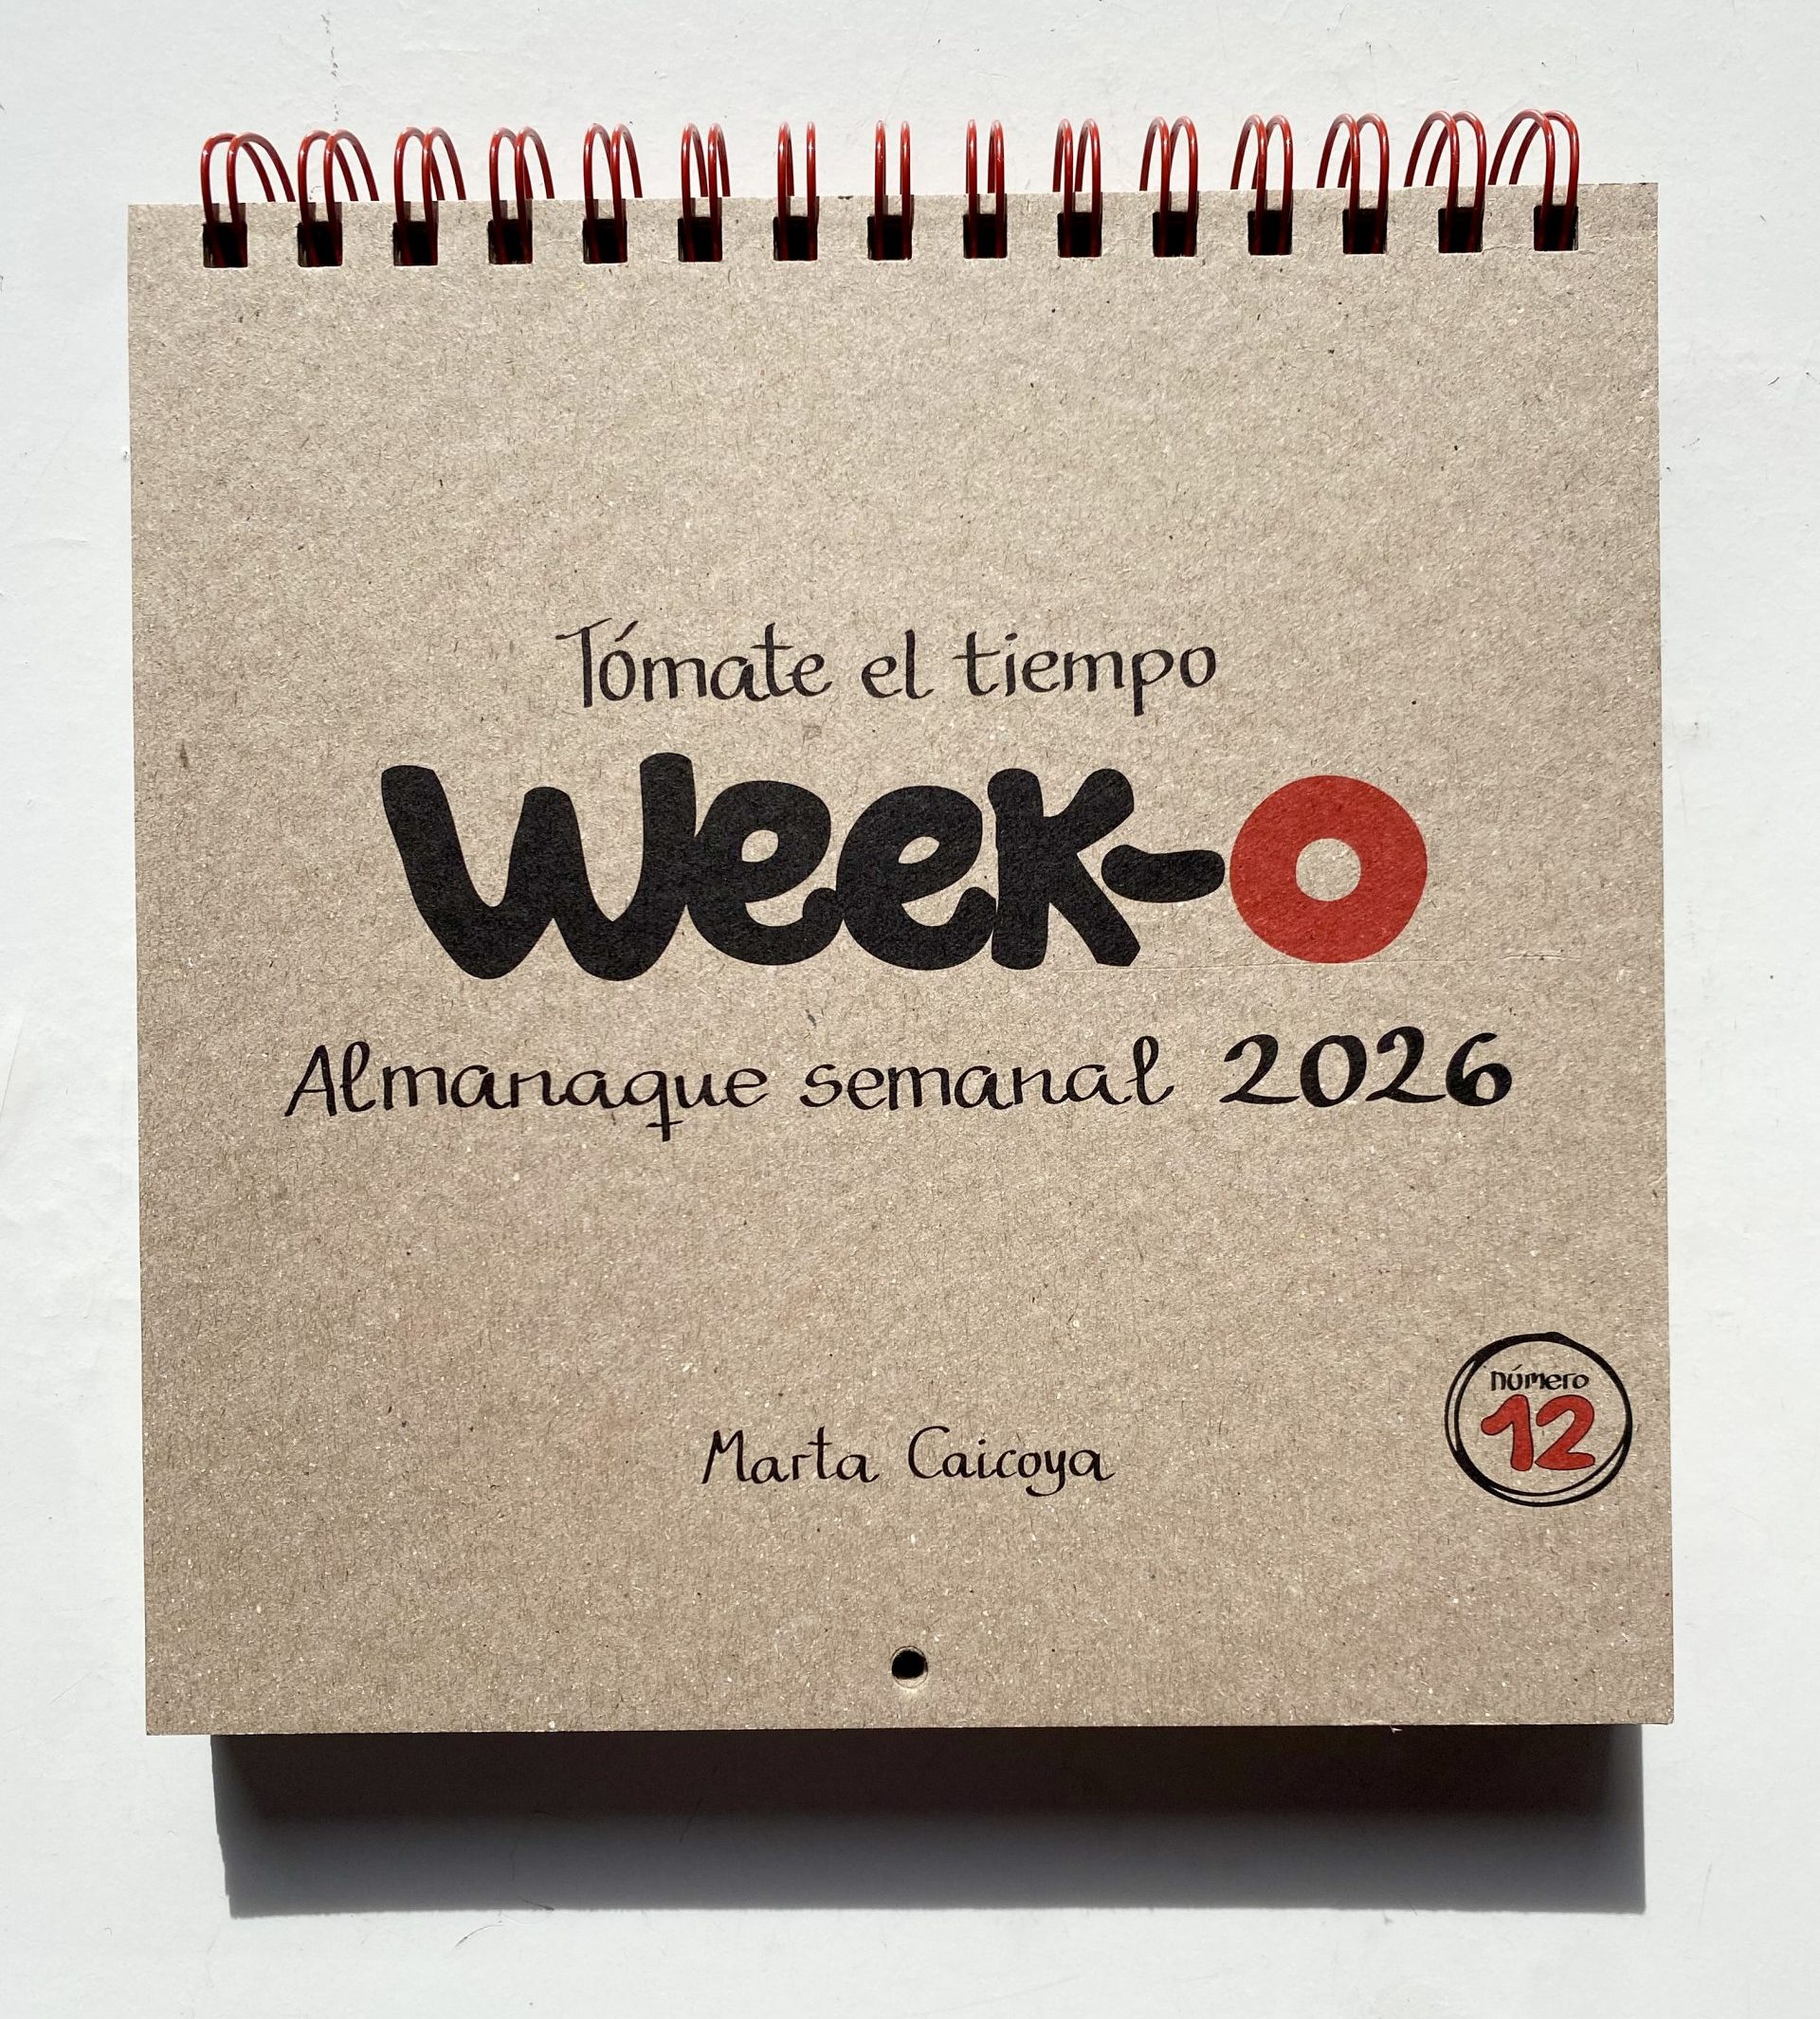 Tómate el tiempo
Week-o
Almanaque semanal 2026
número
12
Marta Caicoya